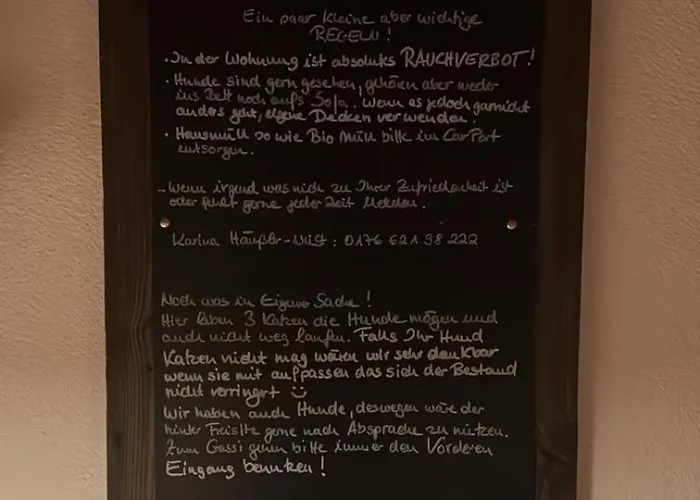 Ein paar kleine aber wichtige
REGELN!
· In der Wohnung ist absolutes RAUCHVERBOT!
· Hunde sind gern gesehen, gehören aber weder
ins Bett noch auf's Sofa. Wenn es jedoch garnicht
anders geht, eigene Decken verwenden!
· Hausmüll so wie Bio Müll bitte im CarPort
entsorgen.
- Wenn irgend was nich zu Ihrer Zufriedenheit ist
oder fehlt gerne jeder Zeit Melden.
Karina : 0176 621 98 222
Noch was in Eigener Sache!
Hier leben 3 Katzen die Hunde mögen und
auch nicht weg laufen. Falls Ihr Hund
Katzen nicht mag wären wir sehr dankbar
wenn sie mit aufpassen das sich der Bestand
nicht verringert ☺
Wir haben auch Hunde, deswegen wäre der
hinter gerne nach Absprache zu nutzen.
Zum Gassi gehen bitte immer den Vorderen
Eingang benutzen!